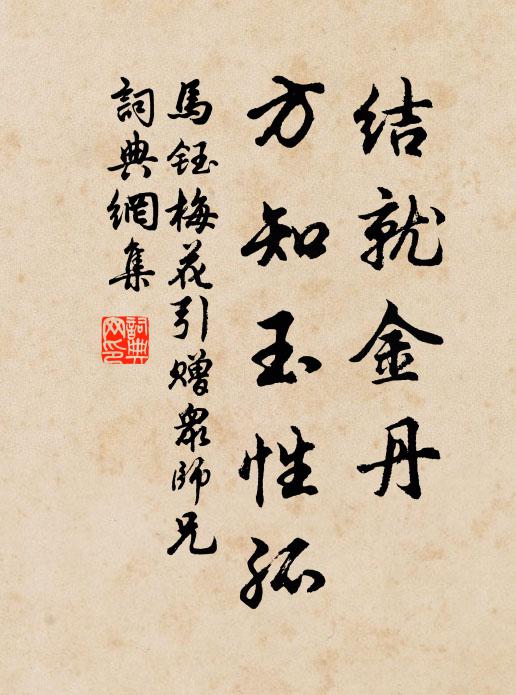 结就金丹
方知玉性孤
馬鈺梅花引赠衆師兄
詞典網集
詞典网印